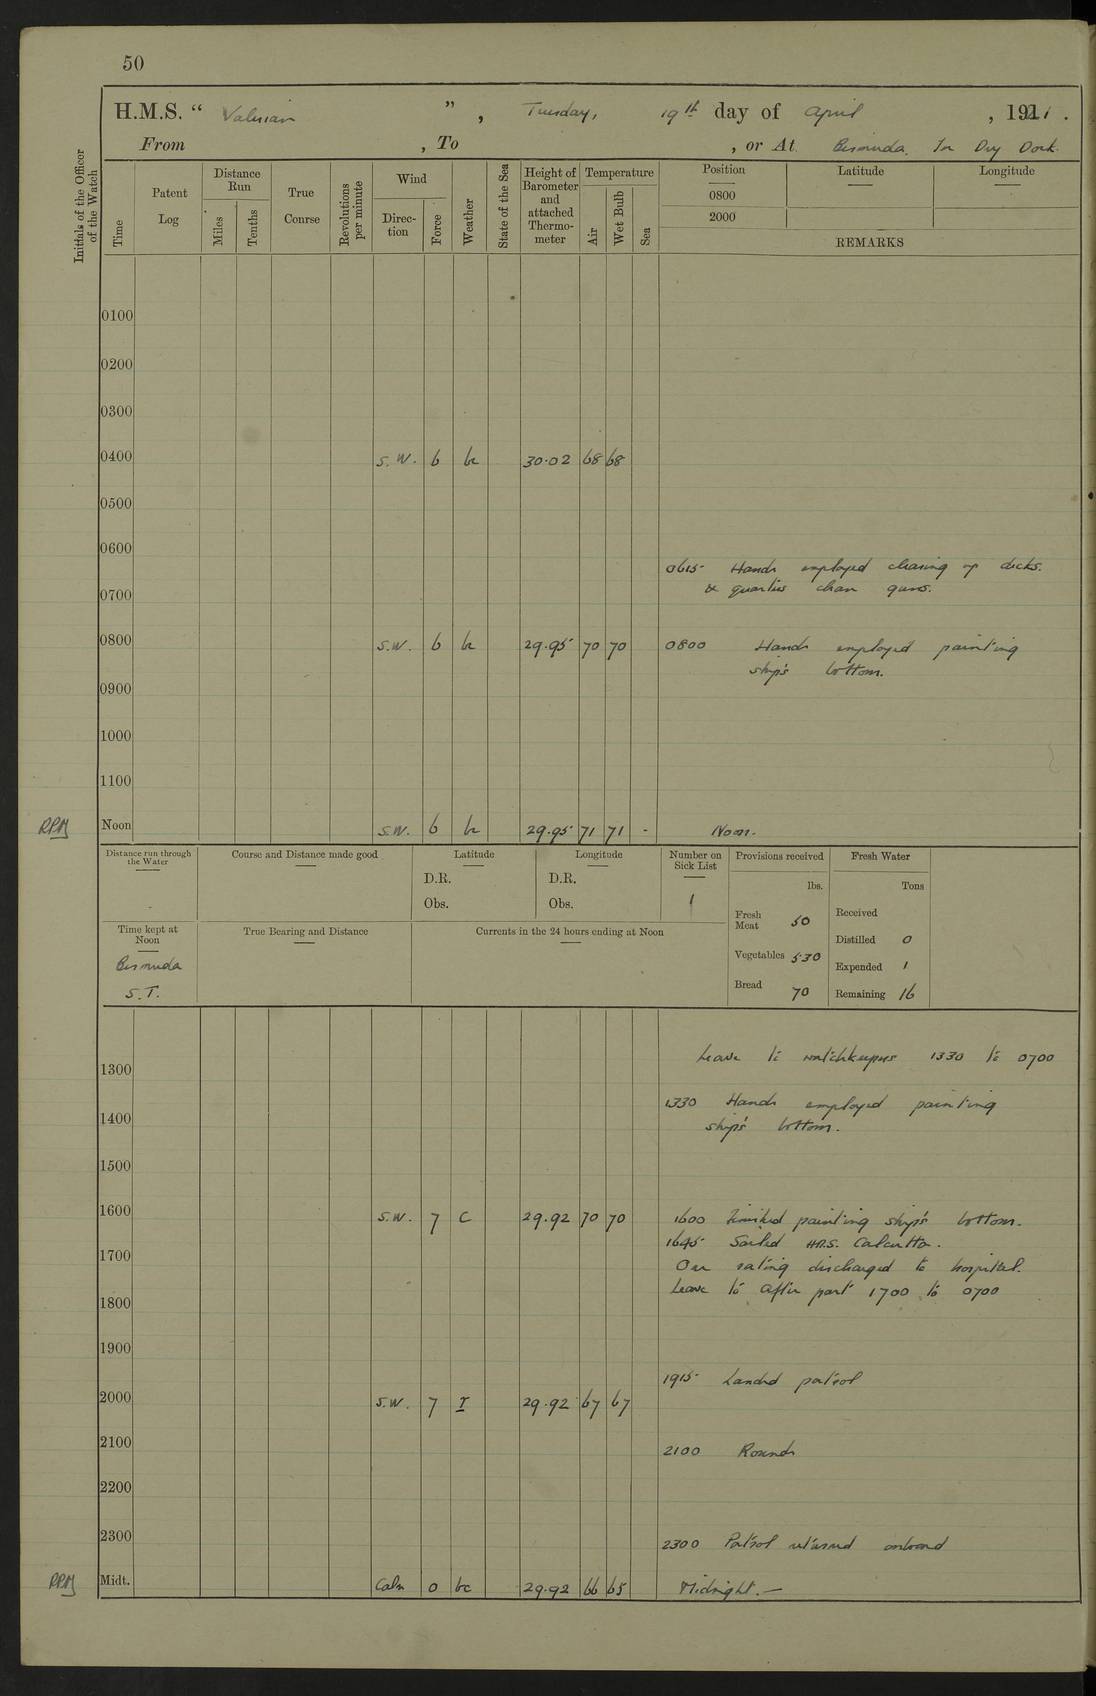 50
H.M.S. “ Valerian ” , Tuesday, 19th day of April , 1921 .
From , To , or At Bermuda. In Dry Dock.
Initials of the Officer of the Watch
Time
Patent Log
Distance Run
Miles
Tenths
True Course
Revolutions per minute
Wind
Direction
Force
Weather
State of the Sea
Height of Barometer and attached Thermometer
Temperature
Air
Wet Bulb
Sea
Position
Latitude
Longitude
0800
2000
REMARKS
0100
0200
0300
0400 S.W. 6 bc 30.02 68 68
0500
0600
0615 Hands employed cleaning up decks.
& quarters clean guns.
0700
0800 S.W. 6 bc 29.95 70 70 0800 Hands employed painting
ship's bottom.
0900
1000
1100
RPM Noon S.W. 6 bc 29.95 71 71 - Noon.
Distance run through the Water
-
Course and Distance made good
Latitude
D.R.
Obs.
Longitude
D.R.
Obs.
Number on Sick List
1
Provisions received
lbs.
Fresh Meat 50
Vegetables 530
Bread 70
Fresh Water
Tons
Received
Distilled 0
Expended 1
Remaining 16
Time kept at Noon
Bermuda
S.T.
True Bearing and Distance
Currents in the 24 hours ending at Noon
Leave to watchkeepers 1330 to 0700
1300
1330 Hands employed painting
1400
ship's bottom.
1500
1600 S.W. 7 c 29.92 70 70 1600 Finished painting ship's bottom.
1645 Sailed H.M.S. Calcutta.
1700
One rating discharged to hospital.
Leave to after part 1700 to 0700
1800
1900
1915 Landed patrol
2000 S.W. 7 r 29.92 67 67
2100 2100 Rounds
2200
2300 2300 Patrol returned onboard
RPM Midt. Calm 0 bc 29.92 66 65 Midnight. —